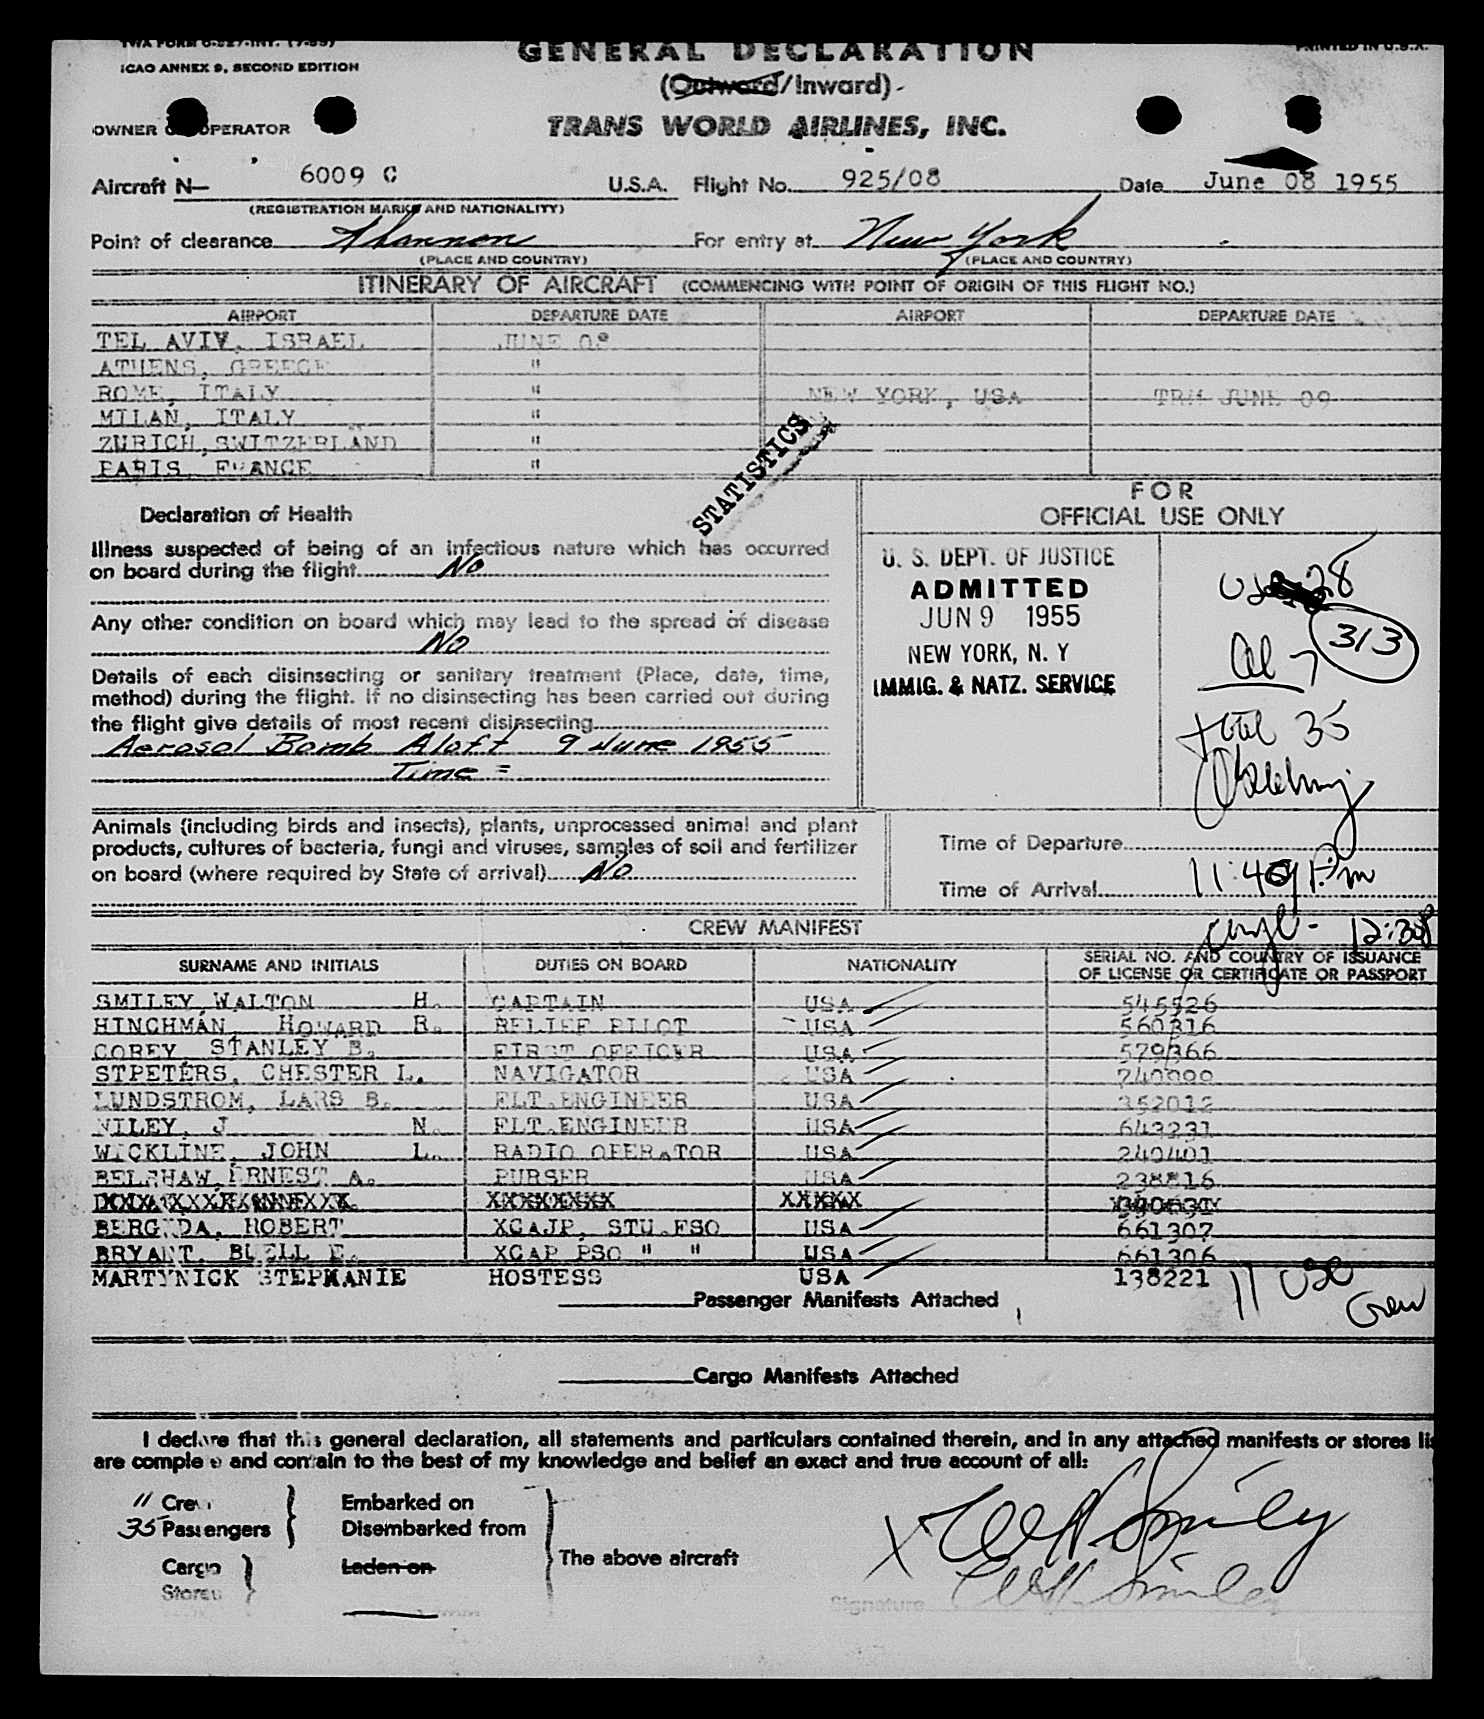 TWA FORM 0-827-INT. (7-55)
ICAO ANNEX 9, SECOND EDITION
GENERAL DECLARATION
PRINTED IN U.S.A.
(Outward/Inward)
OWNER OR OPERATOR
TRANS WORLD AIRLINES, INC.
Aircraft N— 6009 C U.S.A. Flight No. 925/08 Date June 08 1955
(REGISTRATION MARKS AND NATIONALITY)
Point of clearance Shannon For entry at New York
(PLACE AND COUNTRY) (PLACE AND COUNTRY)
ITINERARY OF AIRCRAFT (COMMENCING WITH POINT OF ORIGIN OF THIS FLIGHT NO.)
AIRPORT DEPARTURE DATE AIRPORT DEPARTURE DATE
TEL AVIV, ISRAEL JUNE 08
ATHENS, GREECE "
ROME, ITALY " NEW YORK, USA TRM JUNE 09
MILAN, ITALY "
ZURICH, SWITZERLAND "
PARIS, FRANCE "
STATISTICS
FOR
OFFICIAL USE ONLY
Declaration of Health
Illness suspected of being of an infectious nature which has occurred
on board during the flight No
Any other condition on board which may lead to the spread of disease
No
Details of each disinsecting or sanitary treatment (Place, date, time,
method) during the flight. If no disinsecting has been carried out during
the flight give details of most recent disinsecting
Aerosol Bomb Aloft 9 June 1955
Time =
U. S. DEPT. OF JUSTICE
ADMITTED
JUN 9 1955
NEW YORK, N. Y
IMMIG. & NATZ. SERVICE
28
313
al 7
total 35
Animals (including birds and insects), plants, unprocessed animal and plant
products, cultures of bacteria, fungi and viruses, samples of soil and fertilizer
on board (where required by State of arrival) No
Time of Departure
Time of Arrival 11:49 Pm
12:30
CREW MANIFEST
SURNAME AND INITIALS DUTIES ON BOARD NATIONALITY SERIAL NO. AND COUNTRY OF ISSUANCE OF LICENSE OR CERTIFICATE OR PASSPORT
SMILEY, WALTON H. CAPTAIN USA 545526
HINCHMAN, HOWARD R. RELIEF PILOT USA 560316
COREY, STANLEY B. FIRST OFFICER USA 579366
STPETERS, CHESTER L. NAVIGATOR USA 240999
LUNDSTROM, LARS B. FLT.ENGINEER USA 352012
NILEY, J N. FLT.ENGINEER USA 643231
WICKLINE, JOHN L. RADIO OPERATOR USA 240401
BELSHAW, ERNEST A. PURSER USA 238816
XXXXXXXX XXXXX
BERGUDA, ROBERT XCAJP, STU.FSO USA 661307
BRYANT, BUELL E. XCAP PSO " " USA 661306
MARTYNICK STEPHANIE HOSTESS USA 138221
11 USC
Crew
Passenger Manifests Attached
Cargo Manifests Attached
I declare that this general declaration, all statements and particulars contained therein, and in any attached manifests or stores lis
are complete and contain to the best of my knowledge and belief an exact and true account of all:
11 Crew Embarked on
35 Passengers Disembarked from
The above aircraft
Cargo Laden on
Stores
X W H Smiley
W H Smiley
Signature